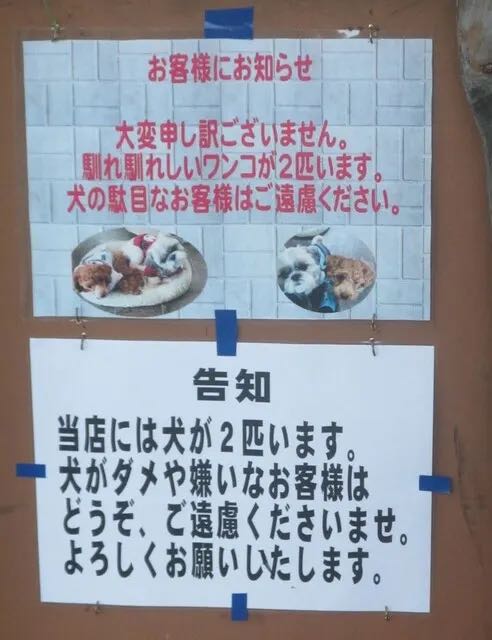 お客様にお知らせ
大変申し訳ございません。
馴れ馴れしいワンコが2匹います。
犬の駄目なお客様はご遠慮ください。
告知
当店には犬が2匹います。
犬がダメや嫌いなお客様は
どうぞ、ご遠慮くださいませ。
よろしくお願いいたします。